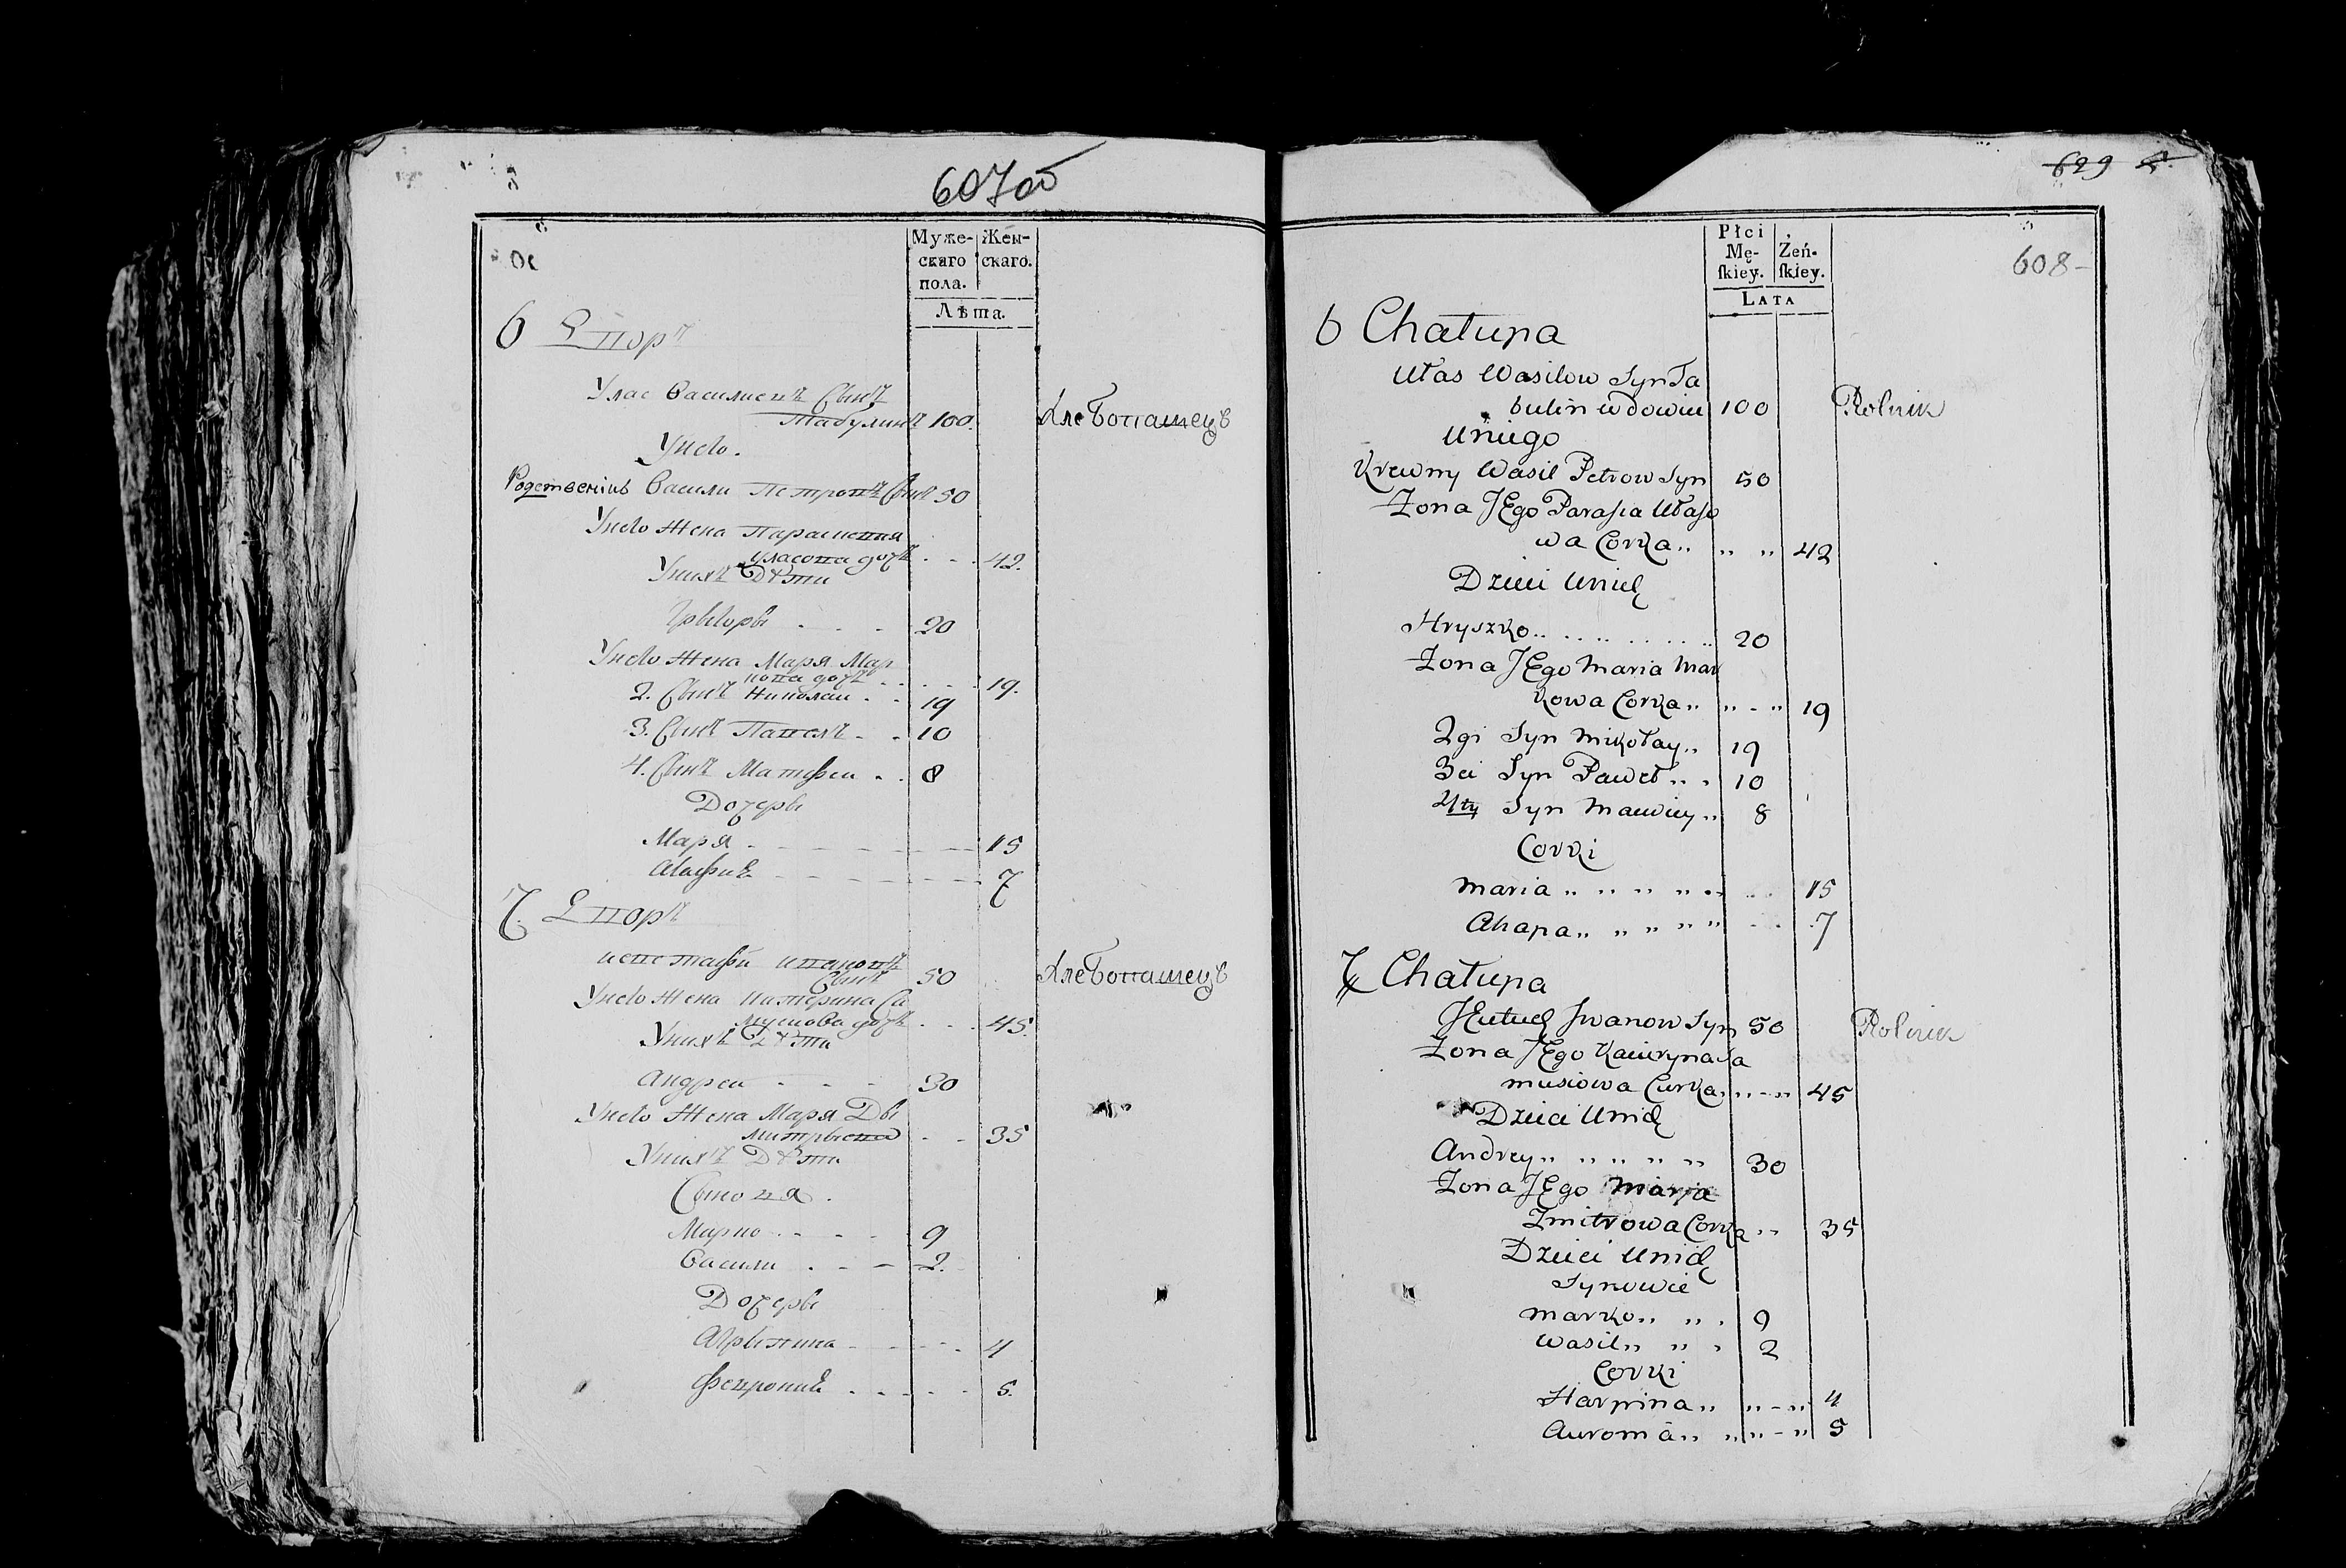 607об
Муже-
скаго
пола.
Жен-
скаго.
Лѣта.
6 Дворъ
Улас Василиевъ Сынъ
Табулинъ 100. Хлебопашецъ
У него.
Родственикъ Васили Петровъ Сынъ 50
У него Жена Параскевия
Уласова дочь . . . 42.
У нихъ Дѣти
Грыгоры . . . 20
У него Жена Маря Мар
кова дочь . . . . 19.
2. Сынъ Николаи . . 19
3. Сынъ Павелъ . . 10
4. Сынъ Матфеи . . 8
Дочеры
Маря . - - - - - 15
Агафия - - - - - 7
7. Дворъ
Иевстафи Ивановъ
Сынъ 50 Хлебопашецъ
У него Жена Катерина Са
мусиова дочь . . . 45.
У нихъ Дѣти
Андреи . - - 30
У него Жена Маря Ды
митрыева . . 35
У нихъ Дѣти
Сыновя.
Марко . - - - 9
Васили . - - 2.
Дочеры
Агрыпина - - - - 4
Феврония . . - - - 5.
629
608-
Płci
Mę-
ſkiey.
Żeń-
ſkiey.
LATA
6 Chałupa
Ułas Wasilow Syn Ta
bulin wdowiec 100 Rolnik
Uniego
Krewny Wasil Petrow Syn 50
Zona JEgo Parasia Ułaso
wa Corka „ „ „ 42
Dzieci Unich
Hryszko „ .. .. . . .. .. 20
Zona JEgo Maria Mar
kowa Corka „ „ - „ 19
2gi Syn Mikołay „ 19
3ci Syn Paweł „ . 10
4ty Syn Maciey „ 8
Corki
Maria „ „ „ „ „ 15
Ahapa „ „ „ „ „ 7
7 Chałupa
Iwanow Syn 50 Rolnik
Zona JEgo Kateryna Sa
musiowa Curka „ „ - „ 45
Dzieci Unich
Andrey „ „ „ „ „ 30
Zona JEgo Marja
Zmitrowa Corka „ 35
Dzieci Unich
Synowie
Marko „ „ . 9
Wasil „ „ . 2
Corki
Harpina „ „ - „ 4
„ „ „ - „ 5